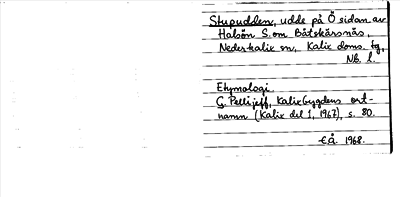 Stupudden, udde på Ö sidan av
Halsön S. om Båtskärsnäs,
Nederkalix sn, Kalix doms. tg,
Nb. l.
Etymologi
G. Pellijeff, Kalixbygdens ort-
namn (Kalix del 1, 1967), s. 80.
E.Å. 1968.